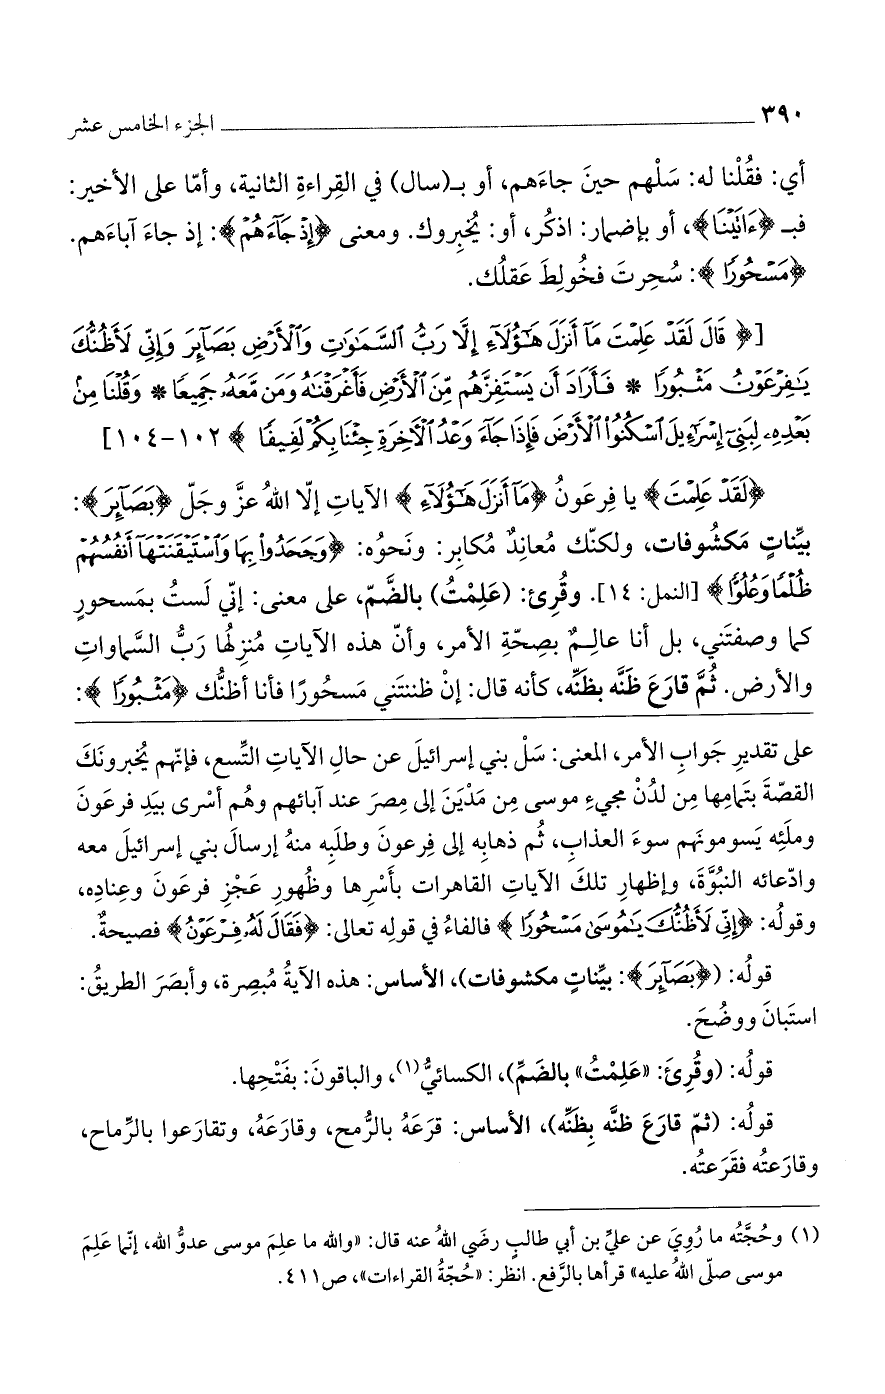 ٣٩٠ الجزء الخامس عشر
أي: فقُلْنا له: سَلْهم حينَ جاءَهم، أو بـ(سال) في القِراءةِ الثانية، وأمّا على الأخير:
فبـ ﴿ءَاتَيْنَا﴾، أو بإضمار: اذكُر، أو: يُخبِروك. ومعنى ﴿إِذْ جَآءَهُمْ﴾: إذ جاءَ آباءَهم.
﴿مَسْحُورًا﴾: سُحِرتَ فخُولِطَ عَقلُك.
[﴿قَالَ لَقَدْ عَلِمْتَ مَآ أَنزَلَ هَٰٓؤُلَآءِ إِلَّا رَبُّ ٱلسَّمَٰوَٰتِ وَٱلْأَرْضِ بَصَآئِرَ وَإِنِّى لَأَظُنُّكَ
يَٰفِرْعَوْنُ مَثْبُورًا * فَأَرَادَ أَن يَسْتَفِزَّهُم مِّنَ ٱلْأَرْضِ فَأَغْرَقْنَٰهُ وَمَن مَّعَهُۥ جَمِيعًا * وَقُلْنَا مِنۢ
بَعْدِهِۦ لِبَنِىٓ إِسْرَٰٓءِيلَ ٱسْكُنُوا۟ ٱلْأَرْضَ فَإِذَا جَآءَ وَعْدُ ٱلْأَخِرَةِ جِئْنَا بِكُمْ لَفِيفًا﴾ ١٠٢-١٠٤]
﴿لَقَدْ عَلِمْتَ﴾ يا فِرعَونُ ﴿مَآ أَنزَلَ هَٰٓؤُلَآءِ﴾ الآياتِ إلّا اللهُ عزَّ وجَلّ ﴿بَصَآئِرَ﴾:
بيِّناتٍ مَكشُوفات، ولكنّك مُعاندٌ مُكابِر: ونَحوُه: ﴿وَجَحَدُوا۟ بِهَا وَٱسْتَيْقَنَتْهَآ أَنفُسُهُمْ
ظُلْمًا وَعُلُوًّا﴾ [النمل: ١٤]. وقُرِئ: (عَلِمْتُ) بالضَّمّ، على معنى: إنّي لَستُ بمَسحورٍ
كما وصفتَني، بل أنا عالِمٌ بصِحّةِ الأمر، وأنّ هذه الآياتِ مُنزِلُها رَبُّ السَّماواتِ
والأرض. ثُمَّ قارَعَ ظَنَّه بظَنِّه، كأنه قال: إنْ ظننتَني مَسحُورًا فأنا أظنُّك ﴿مَثْبُورًا﴾:
على تقديرِ جَوابِ الأمر، المعنى: سَلْ بني إسرائيلَ عن حالِ الآياتِ التِّسع، فإنّهم يُخبرونَكَ
القصّةَ بتَمامِها مِن لدُنْ مجيءِ موسى مِن مَدْيَنَ إلى مِصرَ عند آبائهم وهُم أسْرى بيَدِ فرعَونَ
وملَئِه يَسومونَهم سوءَ العذابِ، ثُم ذهابِه إلى فِرعونَ وطلَبِه منهُ إرسالَ بني إسرائيلَ معه
وادّعائه النبُوَّةَ، وإظهارِ تلكَ الآياتِ القاهرات بأَسْرِها وظُهورِ عَجْزِ فرعَونَ وعِنادِه،
وقولُه: ﴿إِنِّى لَأَظُنُّكَ يَٰمُوسَىٰ مَسْحُورًا﴾ فالفاءُ في قولِه تعالى: ﴿فَقَالَ لَهُۥ فِرْعَوْنُ﴾ فصيحةٌ.
قولُه: (﴿بَصَآئِرَ﴾: بيِّناتٍ مكشوفات)، الأساس: هذه الآيةُ مُبصِرة، وأبصَرَ الطريقُ:
استَبانَ ووضُحَ.
قولُه: (وقُرِئَ: «عَلِمْتُ» بالضَمِّ)، الكسائيُّ(١)، والباقونَ: بفَتْحِها.
قولُه: (ثمّ قارَعَ ظنَّه بِظَنِّه)، الأساس: قرَعَهُ بالرُّمح، وقارَعَهُ، وتقارَعوا بالرِّماح،
وقارَعتُه فقَرَعتُه.
(١) وحُجَّتُه ما رُوِيَ عن عليِّ بن أبي طالبٍ رضَي اللهُ عنه قال: «والله ما علِمَ موسى عدوُّ الله، إنّما عَلِمَ
موسى صلّى اللهُ عليه» قرأها بالرَّفع. انظر: «حُجّةُ القراءات»، ص٤١١.